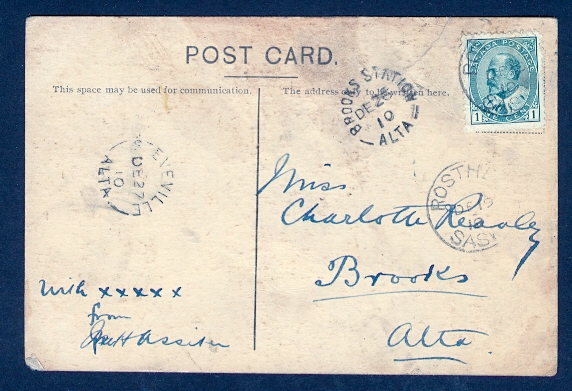 POST CARD.
This space may be used for communication.
The address only to be written here.
CANADA POSTAGE
1 ONE CENT 1
BROOKS STATION
DE 28
10
ALTA
STEVEVILLE
DE 27
10
ALTA
ROSTHERN
DE 19
10
SASK
Miss
Charlotte
Brooks
Alta.
with xxxxx
from